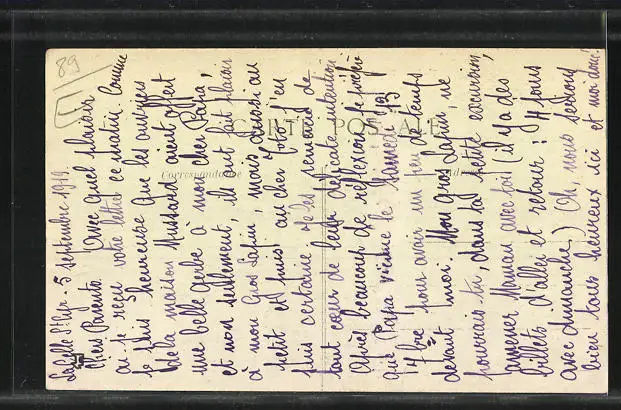 89
CARTE POSTALE
Correspondance
La Colle St Cyr. 5 septembre 1919
Chers Parents. Avec quel plaisir
ai-je reçu votre lettre ce matin. Comme
je suis heureuse que les ouvriers
de la maison Mussard aient offert
une belle gerbe à mon cher Papa,
et non seulement, ils ont fait plaisir
à mon Gros Lapin, mais aussi au
petit et puis au cher Toto. J'en
suis certaine. Je les remercie de
tout cœur de leur délicate intention
Après beaucoup de réflexion je préfère
que Papa vienne le Samedi 13
7bre pour avoir un peu de temps
devant moi. Mon gros Lapin, ne
pourrais-tu, dans ta petite excursion,
amener Maman avec toi (il y a des
billets d'aller et retour: 4 jours
avec dimanche.) Oh, nous serions
bien tous heureux ici et moi donc!